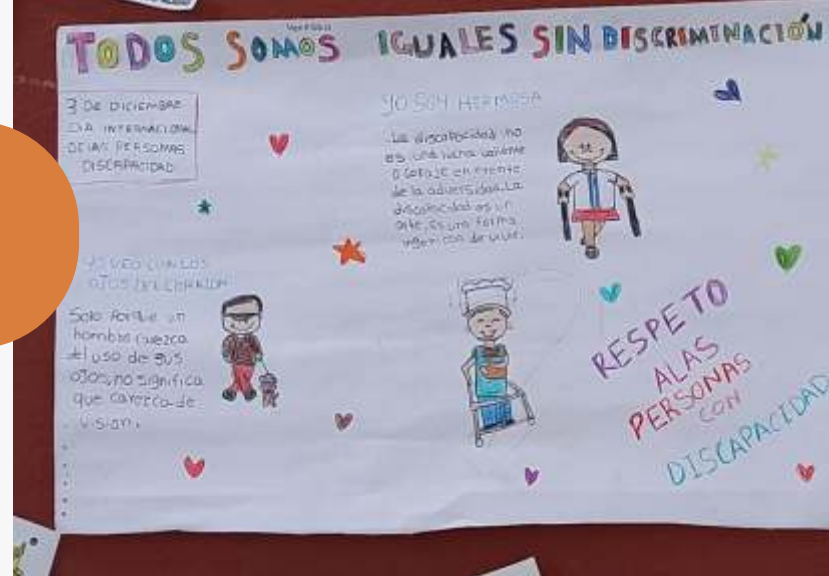 TODOS SOMOS IGUALES SIN DISCRIMINACIÓN
3 DE DICIEMBRE
DIA INTERNACIONAL
DE LAS PERSONAS
DISCAPACIDAD
YO SOY HERMOSA
La discapacidad no
es una lucha valiente
o coraje en frente
de la adversidad. La
discapacidad es un
arte, Es una forma
de vivir.
YO VEO CON LOS
OJOS DEL CORAZON
Solo porque un
hombre carezca
del uso de sus
ojos, no significa
que carezca de
vision.
RESPETO
ALAS
PERSONAS
CON
DISCAPACIDAD